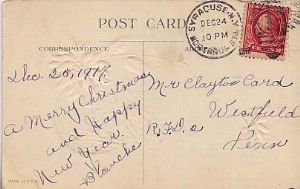 POST CARD
SYRACUSE, N.Y.
DEC 24
10 PM
CORRESPONDENCE
Dec. 20, 1917.
A Merry Christmas
and Happy
New Year.
Blanche
Mr Clayton Card
Westfield
R.F.D.
Penn